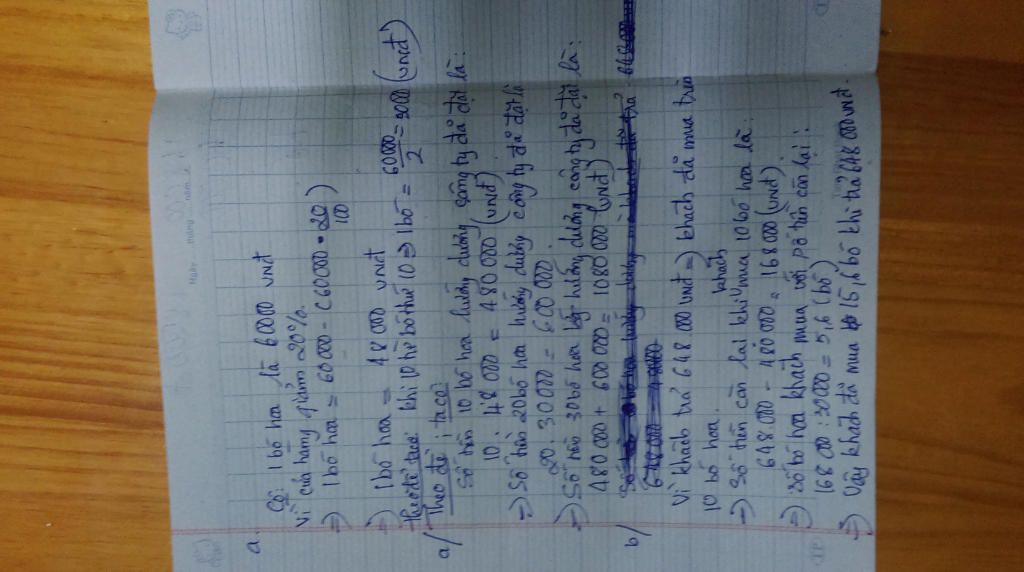 a.
Có: 1 bó hoa là 60000 vnđ
Vì cửa hàng giảm 20%.
=> 1 bó hoa = 60000 - (60000 . 20/100)
=> 1 bó hoa = 48000 vnđ
Theo đề bài: khi 10 từ bó thứ 10 => 1 bó = 60000/2 = 30000 (vnđ)
a/ Theo đề ta có:
Số tiền 10 bó hoa hướng dương công ty đã đặt là:
10 . 48000 = 480 000 (vnđ)
=> Số tiền 20 bó hoa hướng dương công ty đã đặt là
20 . 30000 = 600 000
=> Số tiền 30 bó hoa hướng dương công ty đã đặt là:
480 000 + 600 000 = 1080 000 (vnđ)
b/
Vì khách trả 648 000 vnđ => khách đã mua trên
10 bó hoa.
=> Số tiền còn lại khi khách mua 10 bó hoa là:
648.000 - 480 000 = 168 000 (vnđ)
=> Số bó hoa khách mua với số tiền còn lại:
168 000 : 30 000 = 5,6 (bó)
=> Vậy khách đã mua 15,6 bó khi trả 648 000 vnđ.